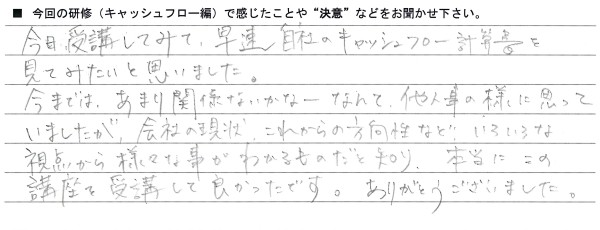 ■ 今回の研修（キャッシュフロー編）で感じたことや“決意”などをお聞かせ下さい。
今回受講してみて、早速自社のキャッシュフロー計算書を
見てみたいと思いました。
今までは、あまり関係ないかなーなんて、他人事の様に思って
いましたが、会社の現状、これからの方向性など、いろいろな
視点から様々な事がわかるものだと知り、本当にこの
講座を受講して良かったです。ありがとうございました。